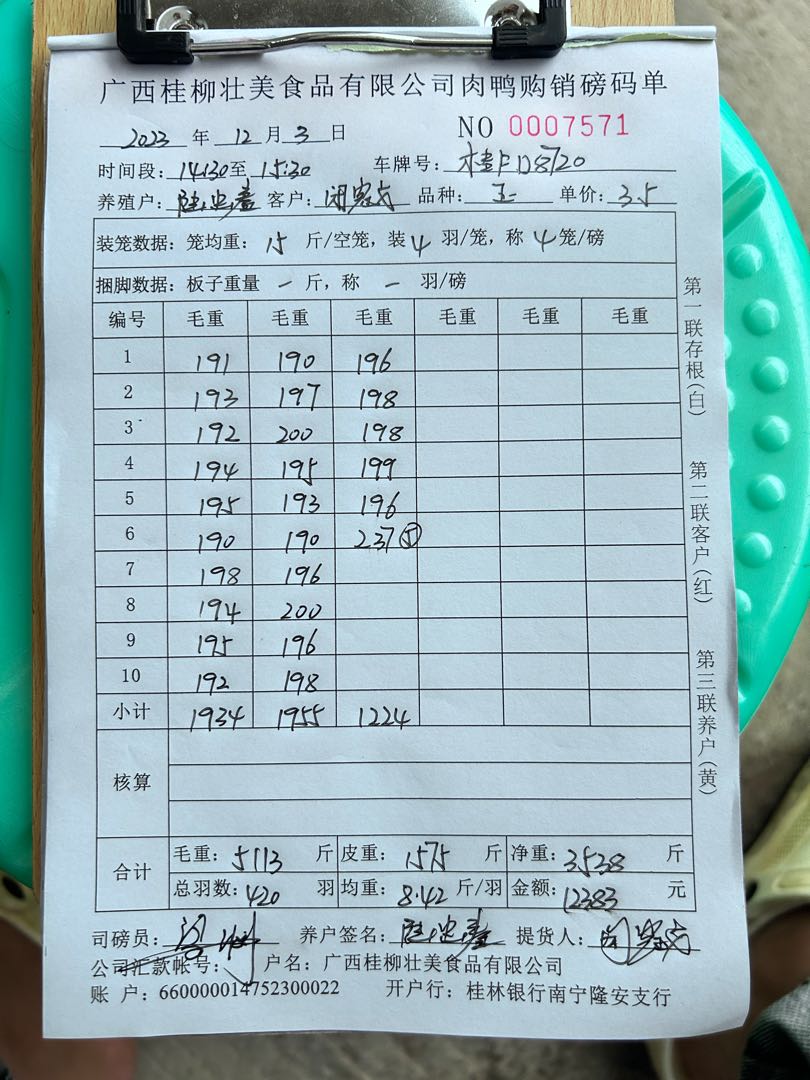 广西桂柳壮美食品有限公司肉鸭购销磅码单
2023 年 12 月 3 日 NO 0007571
时间段: 14:30 至 15:30 车牌号: 桂FD8720
养殖户: 客户: 品种: 玉 单价: 3.5
装笼数据: 笼均重: 15 斤/空笼, 装 4 羽/笼, 称 4 笼/磅
捆脚数据: 板子重量 一 斤, 称 一 羽/磅
编号 毛重 毛重 毛重 毛重 毛重 毛重
1 191 190 196
2 193 197 198
3 192 200 198
4 194 195 199
5 195 193 196
6 190 190 237⑤
7 198 196
8 194 200
9 195 196
10 192 198
小计 1934 1955 1224
核算
合计 毛重: 5113 斤 皮重: 1575 斤 净重: 3538 斤
总羽数: 420 羽 均重: 8.42 斤/羽 金额: 12383 元
司磅员: 养户签名: 提货人:
公司汇款帐号: 户名: 广西桂柳壮美食品有限公司
账 户: 660000014752300022 开户行: 桂林银行南宁隆安支行
第一联存根(白)
第二联客户(红)
第三联养户(黄)